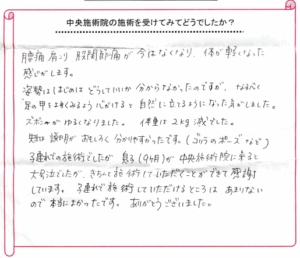 中央施術院の施術を受けてみてどうでしたか？
腰痛 肩こり 股関節痛が 今はなくなり、体が軽くなった
感じがします。
姿勢は はじめは どうしていいか 分からなかったのですが、なるべく
足の甲を よくみるよう 心がけると 自然に立てるようになった気がしました。
ズボンが ゆるくなりました。 体重は 2kg 減でした。
先生は 説明が おもしろく 分かりやすかったです。(ゴリラのポーズなど)
子連れでの施術でしたが 息子(9ヶ月)が 中央施術院に来ると
大泣でしたが、きちんと施術していただくことができて 感謝
しています。 子連れで 施術していただけるところは あまりない
ので 本当によかったです。 ありがとうございました。